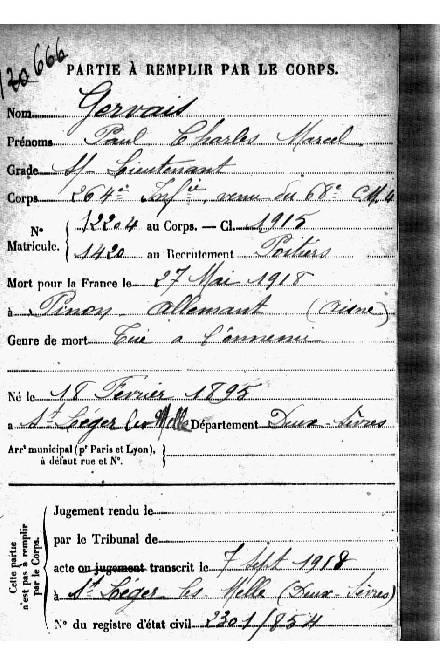 120666
PARTIE À REMPLIR PAR LE CORPS.
Nom Gervais
Prénoms Paul Charles Marcel
Grade S/ Lieutenant
Corps 264e Infie, venu du 68e C.M.4
No 12204 au Corps. — Cl. 1915
Matricule. 1420 au Recrutement Poitiers
Mort pour la France le 27 Mai 1918
à Pinon Allemant (Aisne)
Genre de mort Tué a l'ennemi
Né le 18 Février 1895
a St Léger les Melle Département Deux-Sèvres
Arrt municipal (pr Paris et Lyon),
à défaut rue et No.
Cette partie
n'est pas à remplir
par le Corps.
Jugement rendu le
par le Tribunal de
acte ou jugement transcrit le 7 Sept 1918
à St Léger les Melle (Deux-Sèvres)
No du registre d'état civil 2301/854